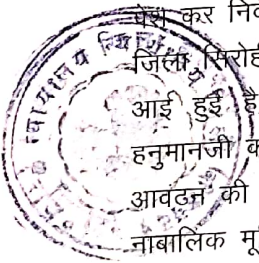 पेश कर निव
जिला सिरोही
आई हुई है
हनुमानजी क
आवटन की
नाबालिक मू